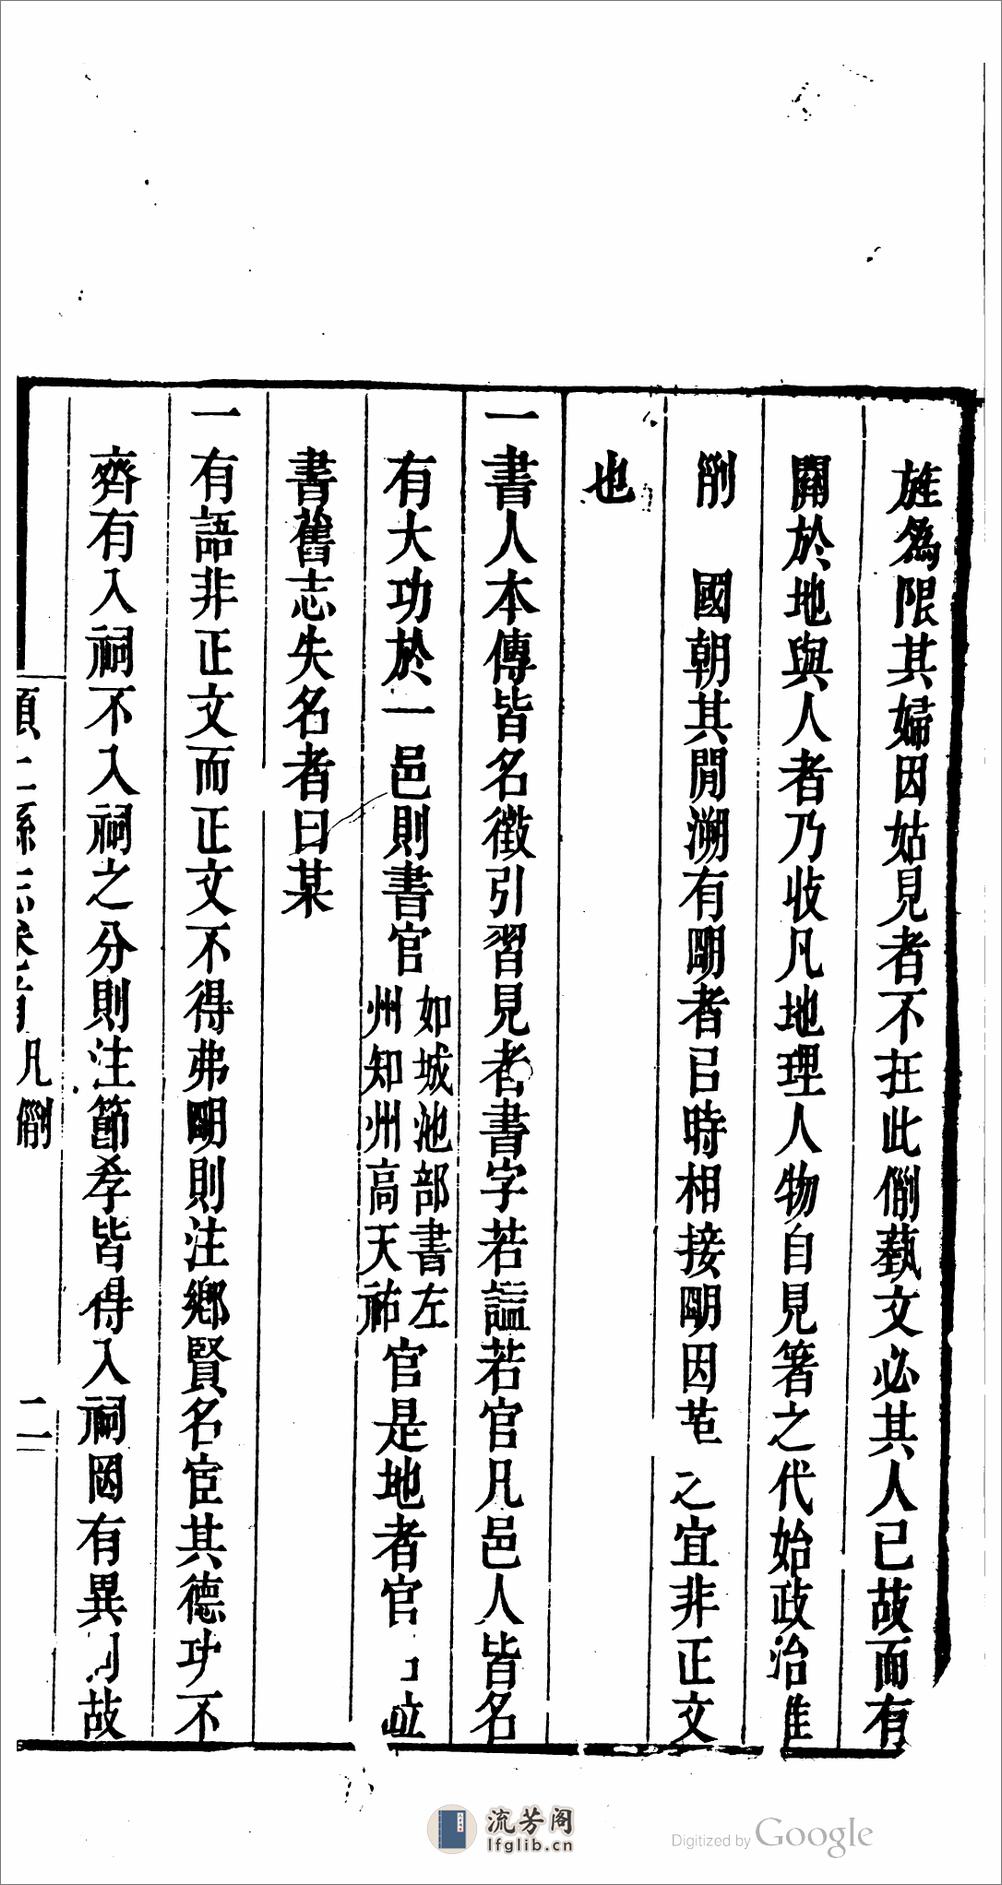 旌爲限其婦因姑見者不在此例藝文必其人已故而有
關於地與人者乃收凡地理人物自見著之代始政治惟
例 國朝其閒溯有明者㠯時相接明因革之宜非正文
也
一書人本傳皆名徵引習見者書字若謚若官凡邑人皆名
有大功於一邑則書官如城池部書左州知州高天祐官是地者官 竝
書舊志失名者曰某
一有語非正文而正文不得弗明則注鄉賢名宦其德功不
齊有入祠不入祠之分則注節孝皆得入祠罔有異 故
頴上縣志卷首 凡例 二
流芳阁
lfglib.cn
Digitized by Google